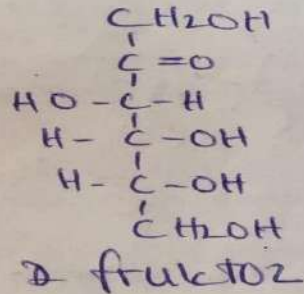 CH2OH
C=O
HO-C-H
H-C-OH
H-C-OH
CH2OH
D fruktoz